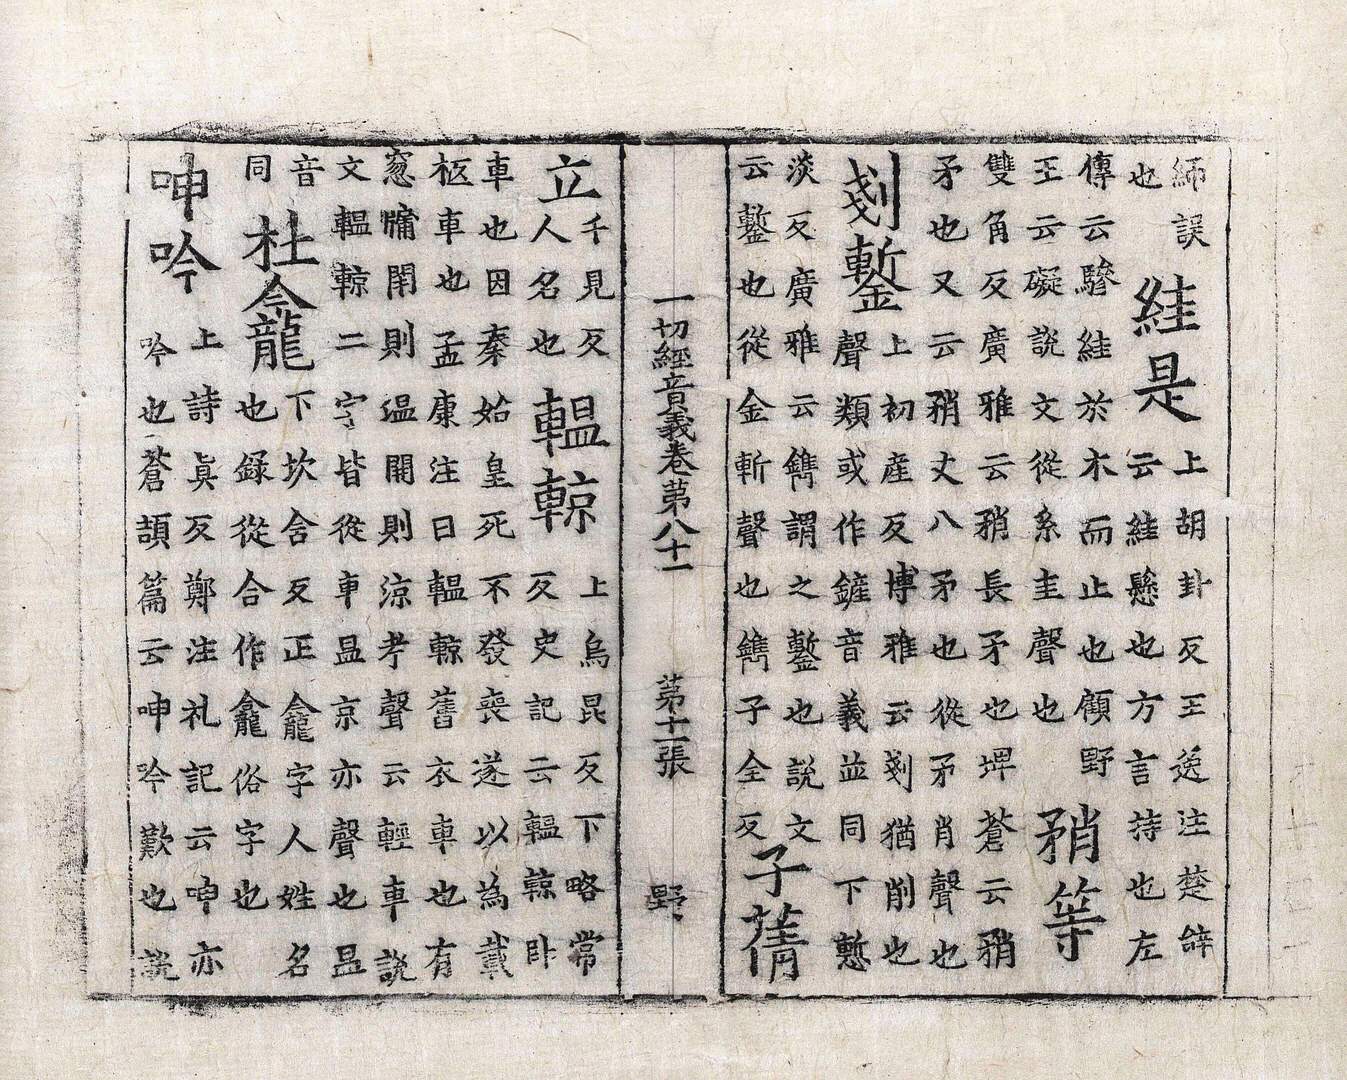 誤
也
絓是
上胡卦反王逸注楚辝
云絓懸也方言特也左
傳云驂絓於木而止也顧野
王云礙說文從糸圭聲也
矟等
雙角反廣雅云矟長矛也埤蒼云矟
矛也又云矟丈八矛也從矛肖聲也
剗鏨
上初產反博雅云剗猶削也
聲類或作鏟音義並同下慙
淡反廣雅云鐫謂之鏨也說文
云鏨也從金斬聲也鐫子全反
子蒨
一切經音義卷第八十一 第十一張 野
立
千見反
人名也
轀輬
上烏昆反下略常
反史記云轀輬卧
車也因秦始皇死不發喪遂以為載
柩車也孟康注曰轀輬舊衣車也有
窓牗閇則温開則涼考聲云輕車說
文轀輬二字皆從車昷京亦聲也昷
音
同
杜龕
下坎含反正龕字人姓名
也錄從合作龕俗字也
呻吟
上詩真反鄭注礼記云呻亦
吟也蒼頡篇云呻吟歎也說